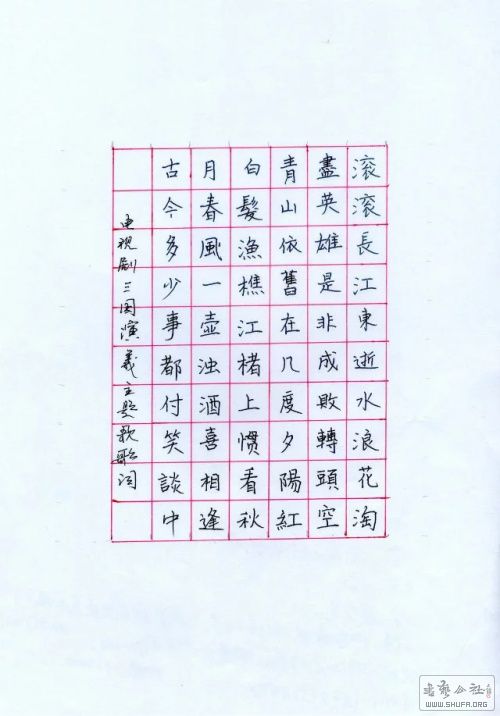 滚滚長江東逝水浪花淘
盡英雄是非成敗轉頭空
青山依舊在几度夕陽紅
白髮漁樵江楮上惯看秋
月春風一壺浊酒喜相逢
古今多少事都付笑談中
电视剧三国演義主题歌歌词
書藝公社
WWW.SHUFA.ORG